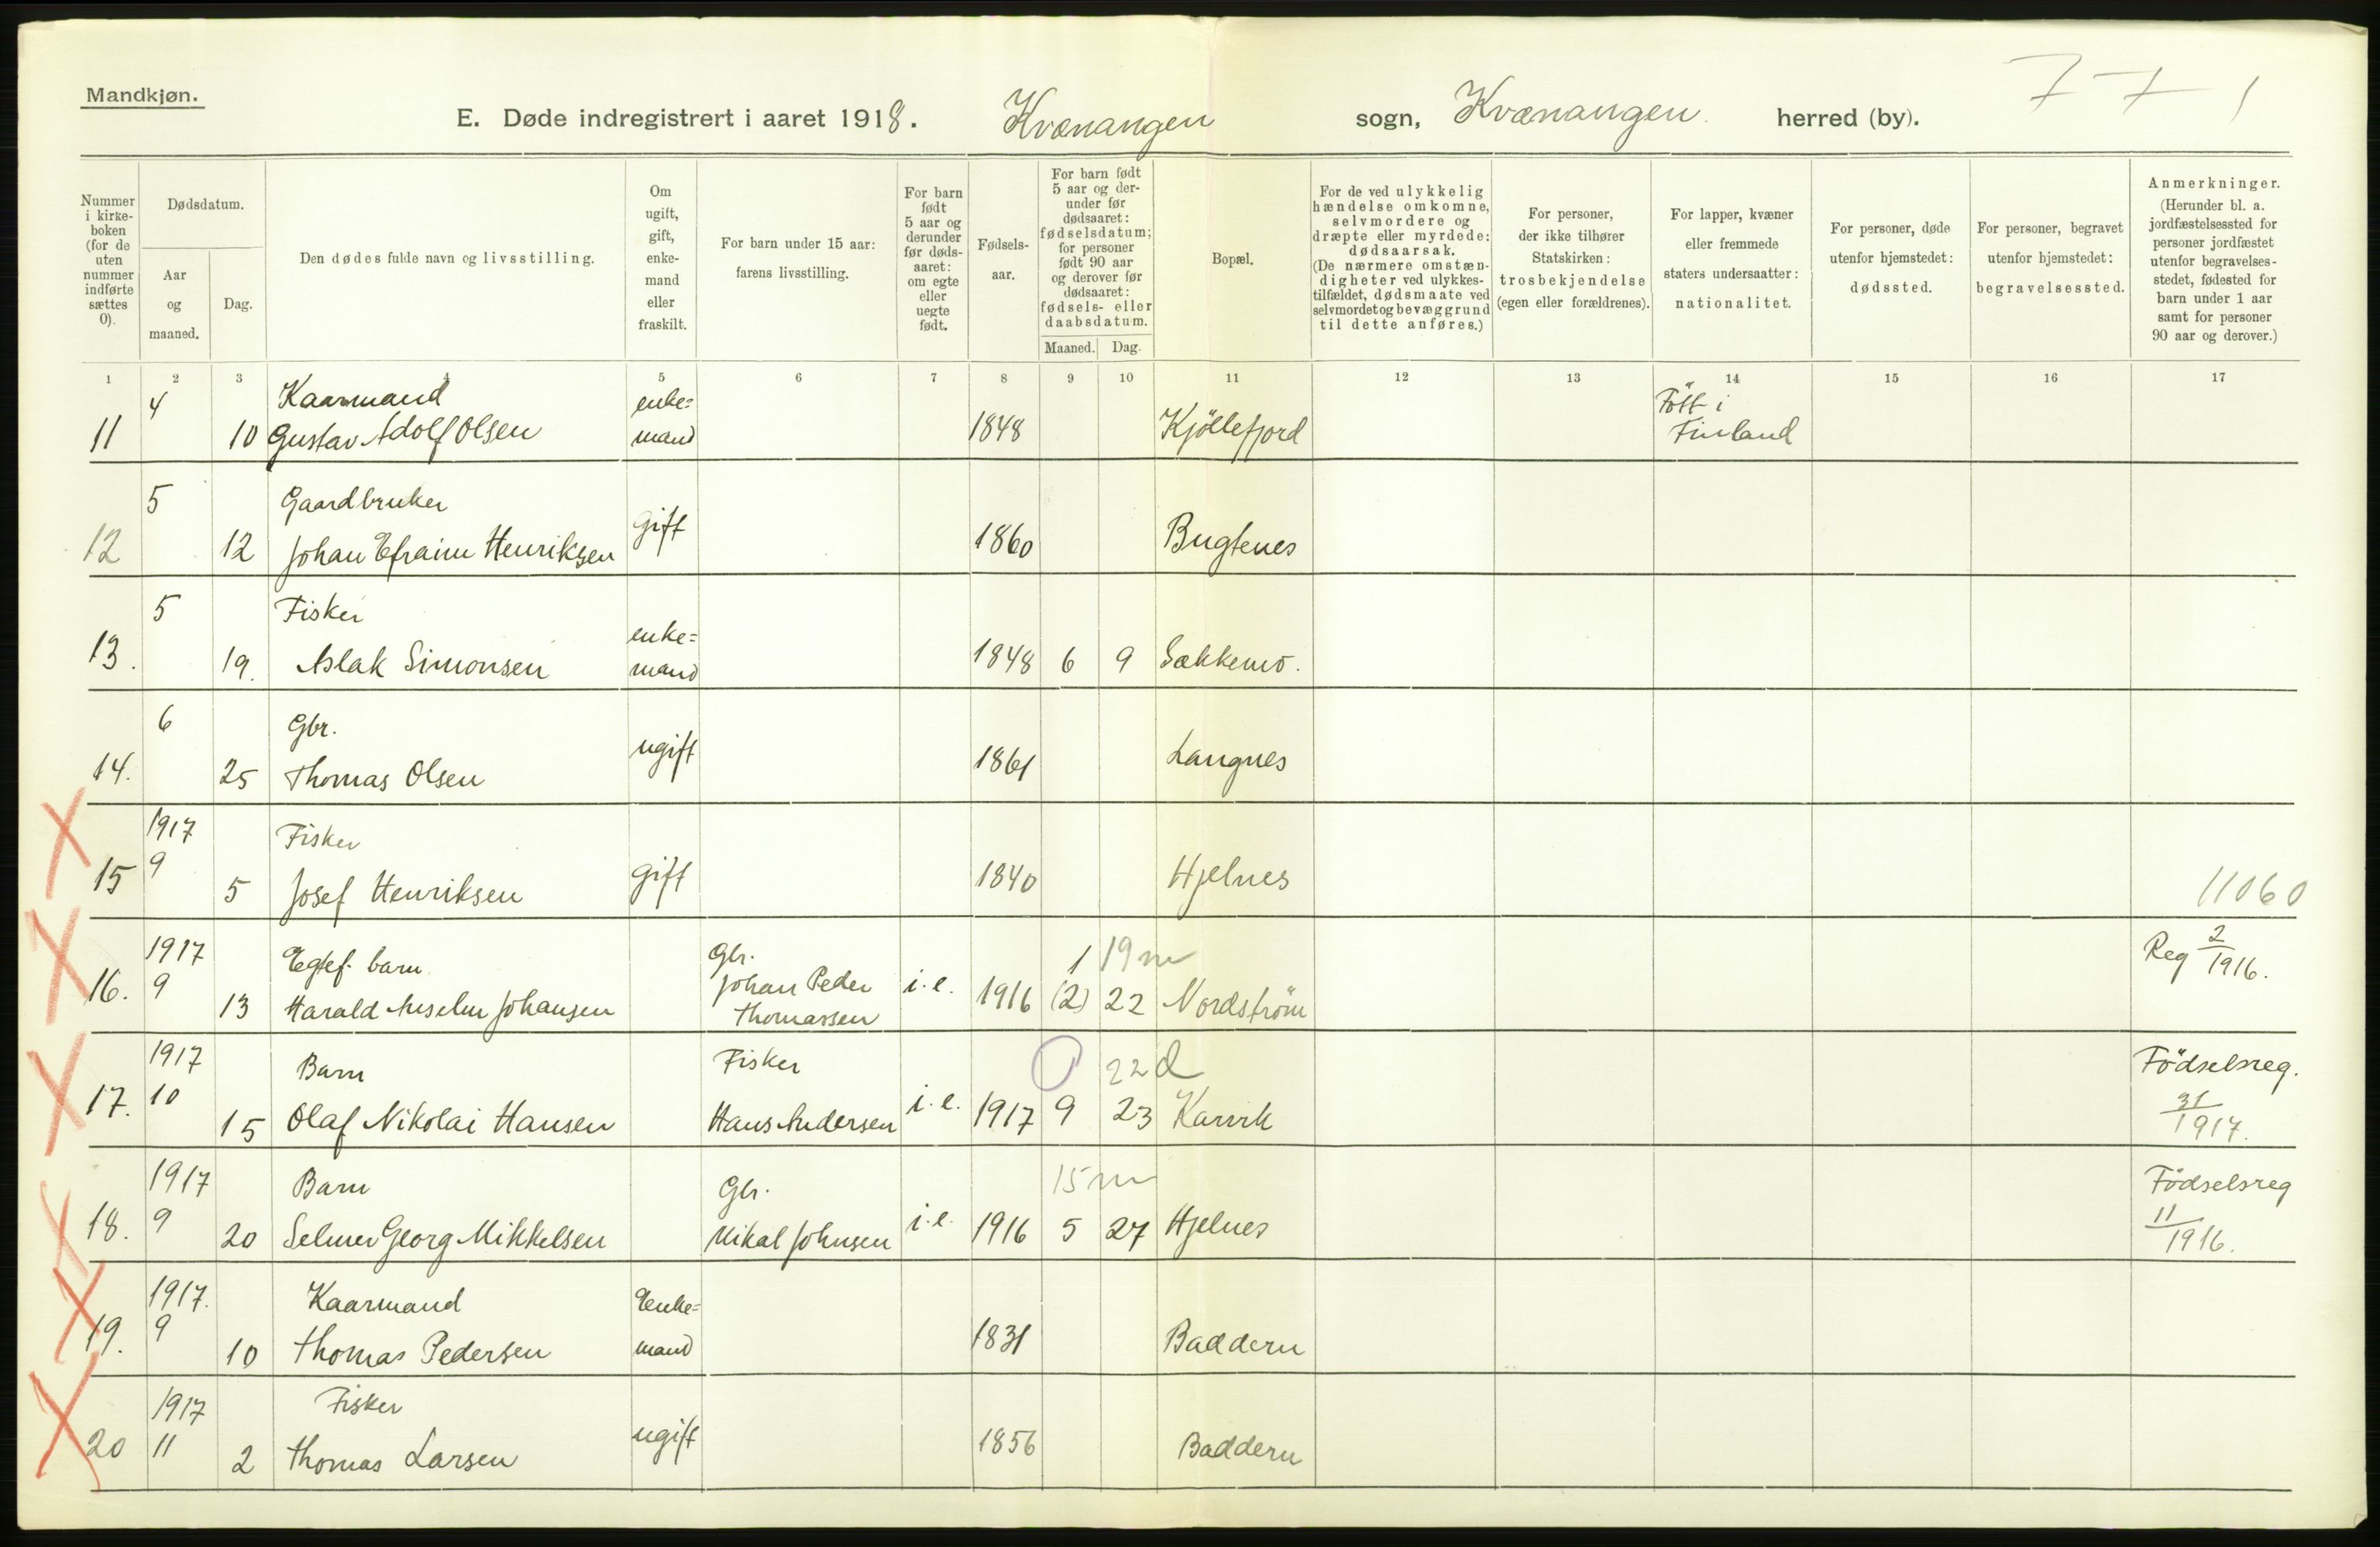 Mandkjøn.
E. Døde indregistrert i aaret 1918. Kvænangen sogn, Kvænangen. herred (by).
7 7 1
Nummer i kirke-boken (for de uten nummer indførte sættes 0).
Dødsdatum.
Aar og maaned.
Dag.
Den dødes fulde navn og livsstilling.
Om ugift, gift, enke-mand eller fraskilt.
For barn under 15 aar: farens livsstilling.
For barn født 5 aar og derunder før døds-aaret: om egte eller uegte født.
Fødsels-aar.
For barn født 5 aar og der-under før dødsaaret: fødselsdatum; for personer født 90 aar og derover før dødsaaret: fødsels- eller daabsdatum.
Maaned. Dag.
Bopæl.
For de ved ulykkelig hændelse omkomne, selvmordere og dræpte eller myrdede: dødsaarsak. (De nærmere omstæn-digheter ved ulykkes-tilfældet, dødsmaate ved selvmordet og bevæggrund til dette anføres.)
For personer, der ikke tilhører Statskirken: trosbekjendelse (egen eller forældrenes).
For lapper, kvæner eller fremmede staters undersaatter: nationalitet.
For personer, døde utenfor hjemstedet: dødssted.
For personer, begravet utenfor hjemstedet: begravelsessted.
Anmerkninger. (Herunder bl. a. jordfæstelsessted for personer jordfæstet utenfor begravelses-stedet, fødested for barn under 1 aar samt for personer 90 aar og derover.)
1 2 3 4 5 6 7 8 9 10 11 12 13 14 15 16 17
4 Kaarmand enke= Fött i
11 10 Gustav Adolf Olsen mand 1848 Kjöllefjord Finland
5 Gaardbruker gift
12 12 Johan Efraim Henriksen 1860 Bugtenes
5 Fisker enke=
13. 19. Aslak Simonsen mand 1848 6 9 Sækkemo.
6 Gbr. ugift
14. 25 Thomas Olsen 1861 Langnes
1917 Fisker
15 9 5 Josef Henriksen gift 1840 Hjelnes 11060
1917 Egtef. barn Gbr. 1 19 m Reg 2/1916.
16. 9 13 Harald Anselm Johansen Johan Peder Thomassen i.e. 1916 (2) 22 Nordström
1917 Barn Fisker 22 d Födselsreg.
17. 10 15 Olaf Nikolai Hansen Hans Andersen i.e. 1917 9 23 Karvik 31/1917.
1917 Barn Gbr. 15 m Födselsreg
18. 9 20 Selmer Georg Mikkelsen Mikal Johnsen i.e. 1916 5 27 Hjelnes 11/1916.
1917. Kaarmand Enke=
19. 9 10 Thomas Pedersen mand 1831 Baddern
1917 Fisker ugift
20 11 2 Thomas Larsen 1856 Baddern